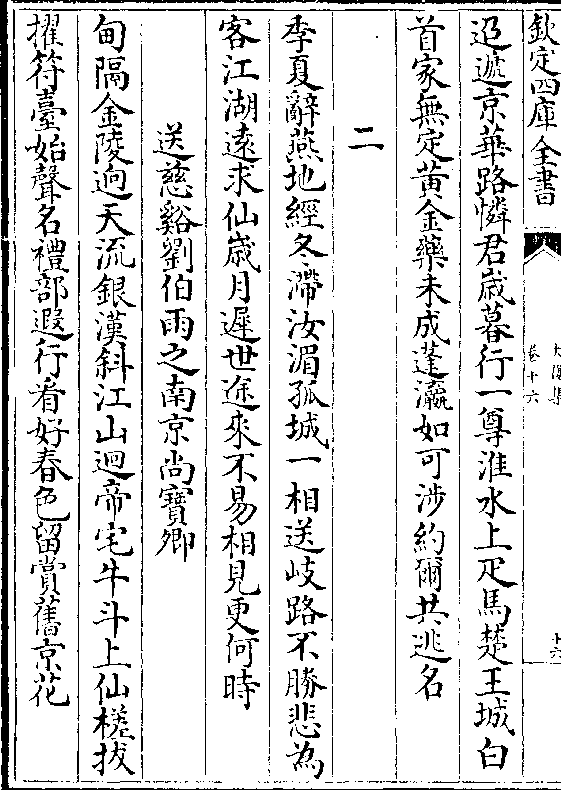 欽定四庫全書
卷十六
十六
迢遞京華路憐君歲暮行一尊淮水上疋馬楚王城白
首家無定黄金藥未成蓬瀛如可涉約爾共逃名
二
季夏辭燕地經冬滯汝湄孤城一相送岐路不勝悲為
客江湖遠求仙歲月遲世途來不易相見更何時
送慈谿劉伯雨之南京尚寶卿
甸隔金陵逈天流銀漢斜江山迴帝宅牛斗上仙槎拔
擢符臺始聲名禮部遐行看好春色留賞舊京花